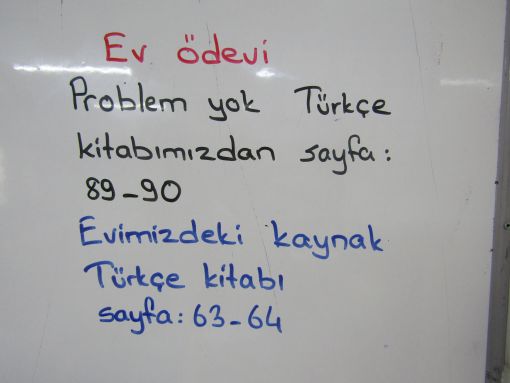 Ev ödevi
Problem yok Türkçe
kitabımızdan sayfa:
89-90
Evimizdeki kaynak
Türkçe kitabı
sayfa: 63-64